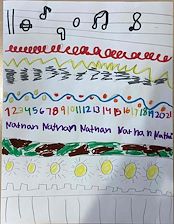 1 2 3 4 5 6 7 8 9 10 11 12 13 14 15 16 17 18 19 20 21
Nathan Nathan Nathan Nathan Nathan